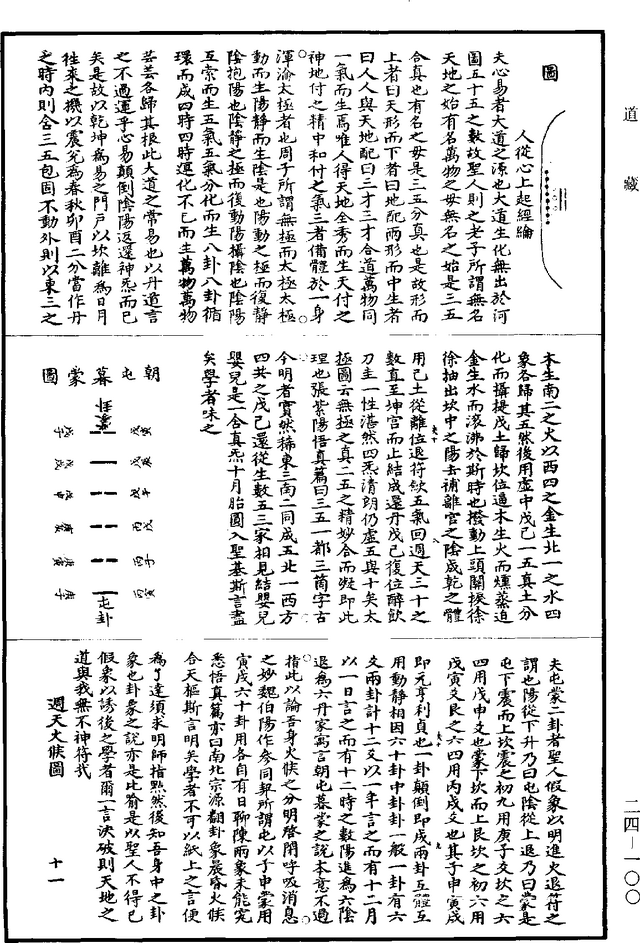 道藏
圖
人從心上起經綸
夫心易者大道之源也大道生化無出於河
圖五十五之數故聖人則之老子所謂無名
天地之始有名萬物之母無名之始是三五
合真也有名之母是三五分真也是故形而
上者曰天形而下者曰地配兩形而中生者
曰人人與天地配曰三才三才合道萬物同
一氣而生焉唯人得天地全秀而生天付之
神地付之精中和付之氣三者備體於一身
渾淪太極者也周子所謂無極而太極太極
動而生陽靜而生陰是也陽動之極而復靜
陰抱陽也陰靜之極而復動陽攝陰也陰陽
互索而生五氣五氣分化而生八卦八卦循
環而成四時四時運化不已而生萬物萬物
芸芸各歸其根此大道之常易也以丹道言
之不過運乎心易顛倒陰陽返還神炁而已
矣是故以乾坤為易之門戶以坎離為日月
往來之機以震兌為春秋卯酉二分當作丹
之時內則含三五包固不動外則以東三之
本生南二之火以西四之金生北一之水四
象各歸其五然後用虛中戊己一五真土分
化而攝提戊土歸坎位過木生火而燻蒸迫
金生水而滾沸於斯時也撥動上頭關捩徐
徐抽出坎中之陽去補離宮之陰成乾之體
用己土從離位退符斂五氣回週天三十之
數直至坤宮而止結成還丹戊己復位醉飲
刀圭一性湛然四炁清朗仍虛五與十矣太
極圖云無極之真二五之精妙合而凝即此
理也張紫陽悟真篇曰三五一都三箇字古
今明者實然稀東三南二同成五北一西方
四共之戊己還從生數五三家相見結嬰兒
嬰兒是一合真炁十月胎圓入聖基斯言盡
矣學者味之
朝屯暮蒙圖
屯卦
夫屯蒙二卦者聖人假象以明進火退符之
謂也陽從下升乃曰屯陰從上退乃曰蒙是
屯下震而上坎震之初九用庚子爻坎之六
四用戊申爻也蒙下坎而上艮坎之初六用
戊寅爻艮之六四用丙戌爻也其子申寅戌
即元亨利貞也一卦顛倒即成兩卦互體互
用動靜相因六十卦中卦卦一般一卦有六
爻兩卦計十二爻以一年言之而有十二月
以一日言之而有十二時之數陽進為六陰
退為六丹家寓言朝屯暮蒙之說本意不過
指此以論吾身火候之分明啓閉呼吸消息
之妙魏伯陽作參同契所謂屯以子申蒙用
寅戌六十卦用各自有日聊陳兩象未能究
悉悟真篇亦曰南北宗源翻卦象晨昏火候
合天樞斯言明矣學者不可以紙上之言便
為了達須求明師指點然後知吾身中之卦
象也卦象之說亦是比喻是以聖人不得已
假象以誘後之學者爾一言決破則天地之
道與我無不神符哉
週天火候圖
十一
二四—一〇〇